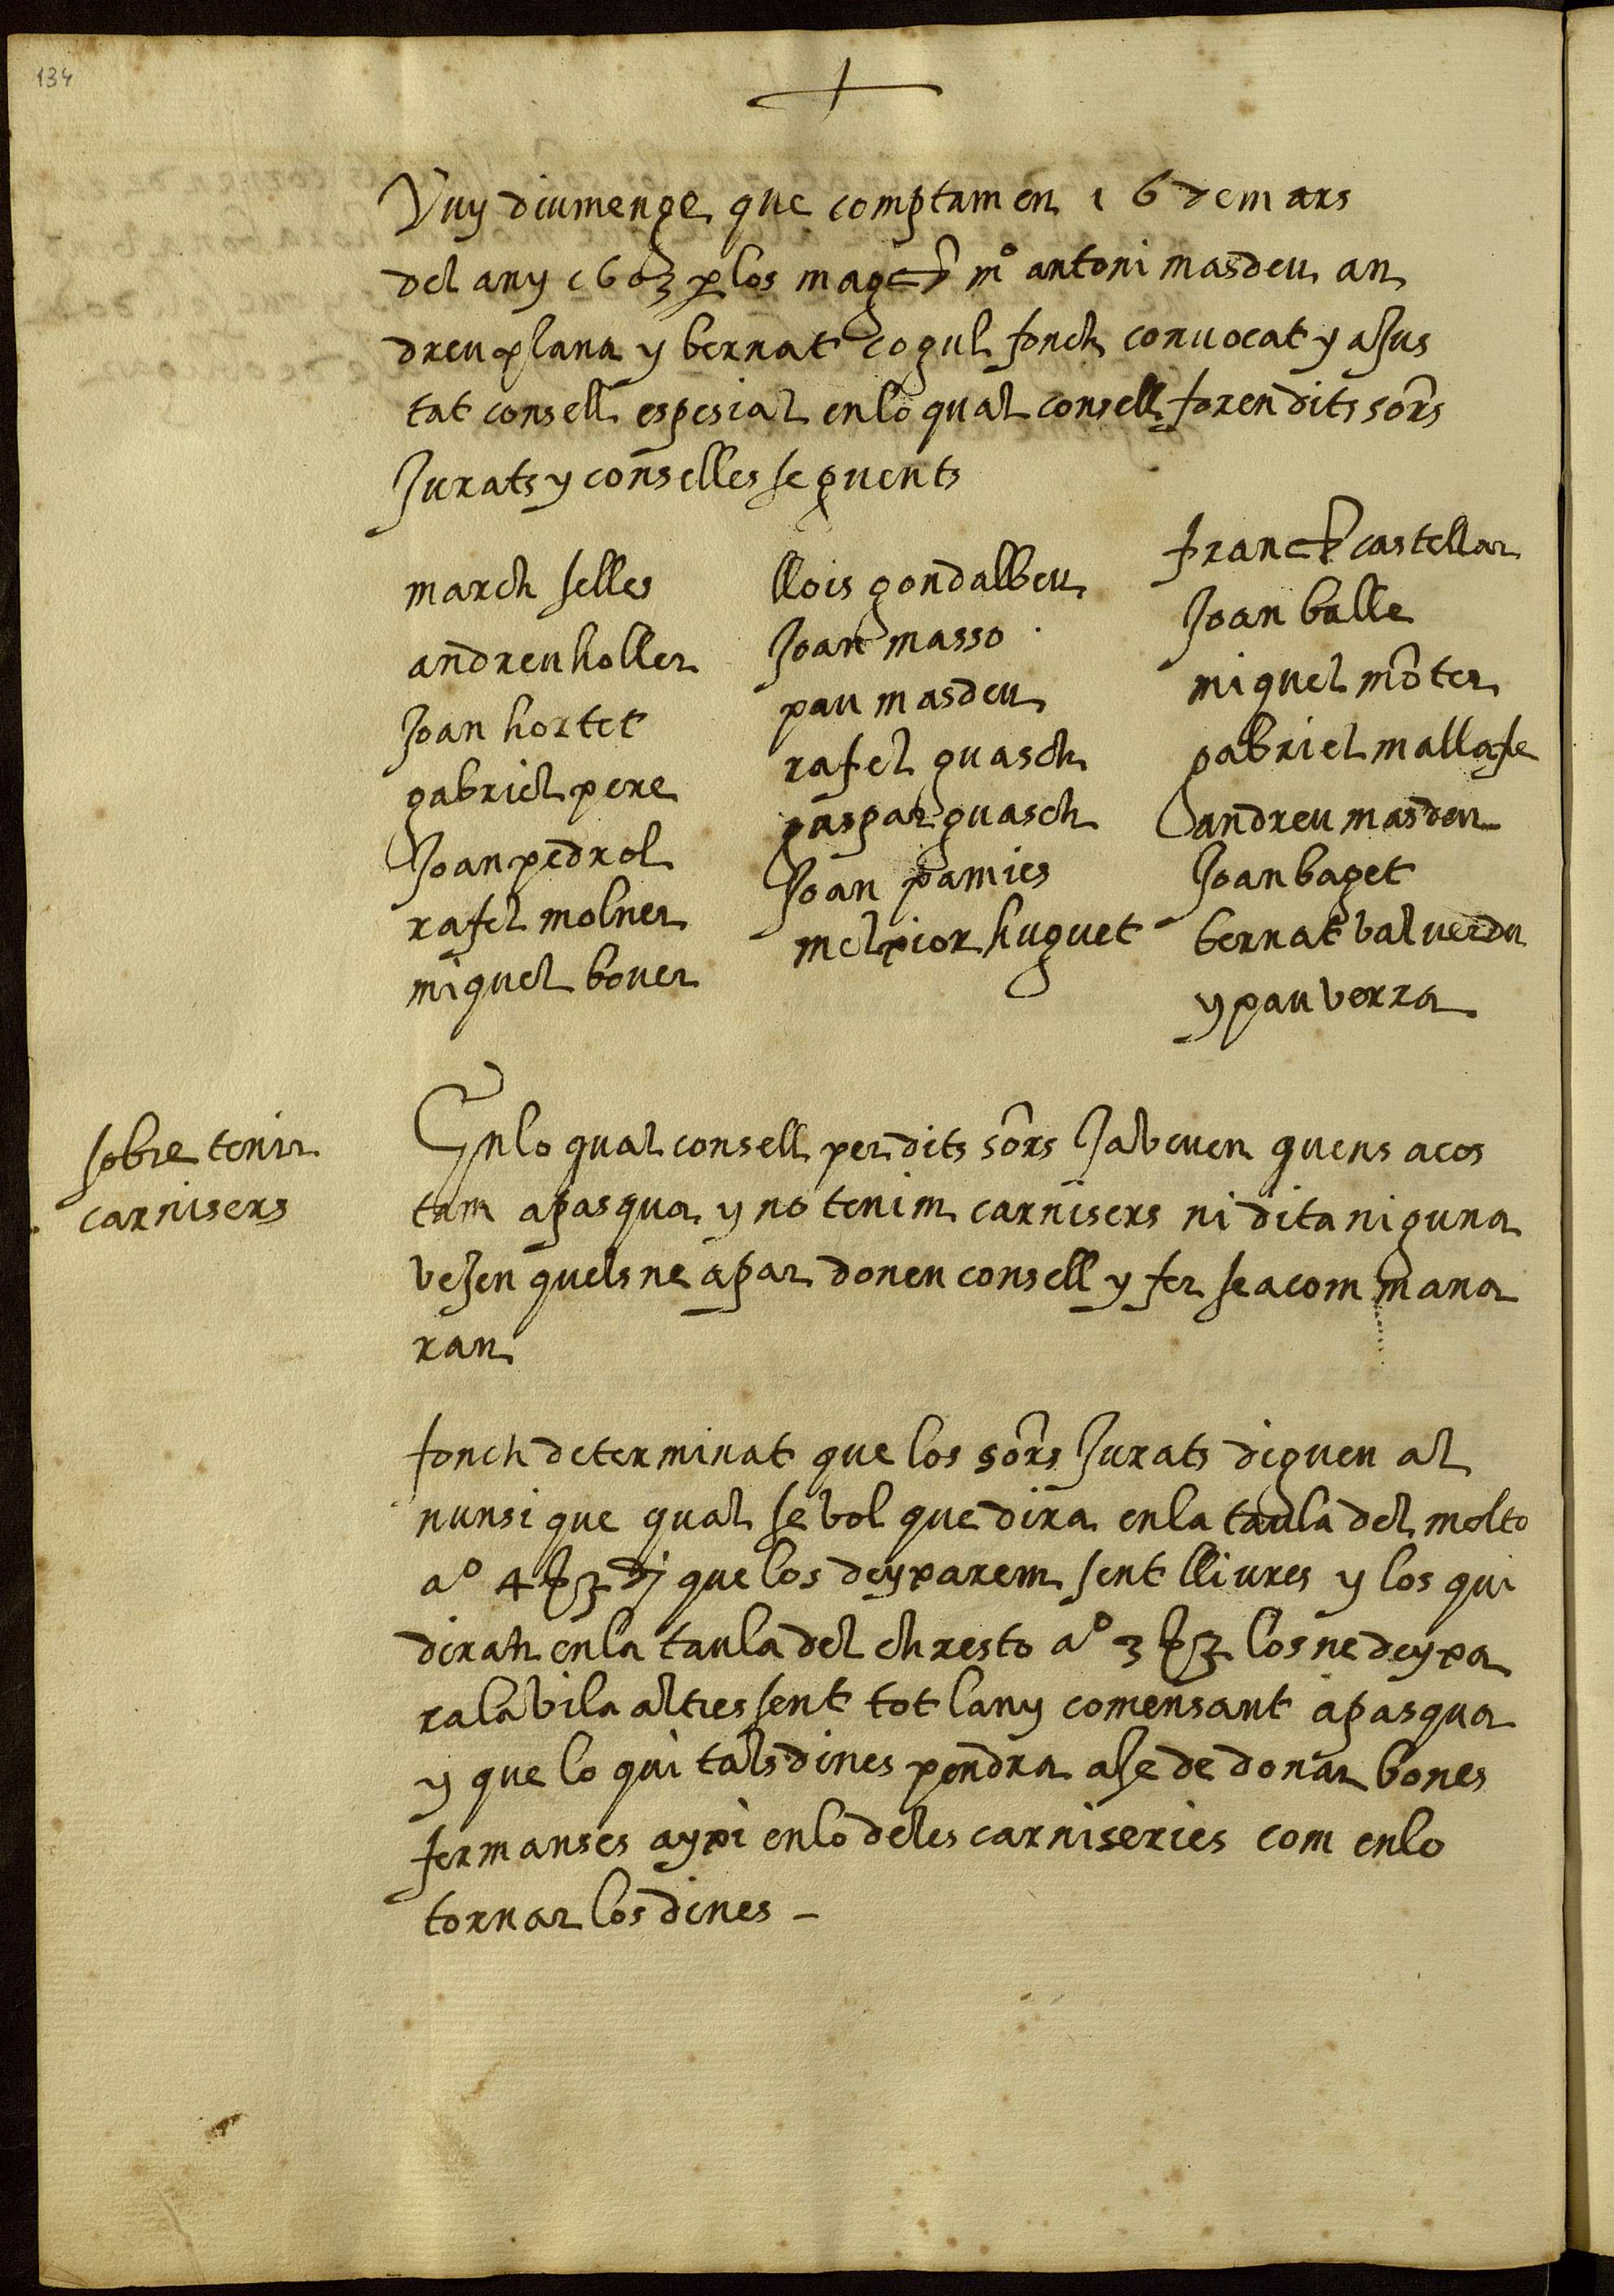 134
Vuy diumenge que comptam en 16 de mars
del any 1603 p los magchs mo antoni masdeu an
dreu plana y bernat cogul fonch convocat y ajus
tat consell espesial en lo qual consell foren dits sors
Jurats y conselles seguents
march selles
andreu holler
Joan hortet
gabriel pere
Joan pedrol
rafel molner
miquel bover
llois gondalbeu
Joan masso
pau masdeu
rafel guasch
gaspar guasch
Joan pamies
melxior huguet
franch castellar
Joan balle
miquel môter
gabriel mallafre
andreu masdeu
Joan baget
bernat balverdu
y pau verra
sobre tenir
carnisers
En lo qual consell per dits sors Ja beuen quens acos
tam a pasqua y no tenim carnisers ni dita niguna
vejen quels ne apar donen consell y fer se a com mana
ran
fonch determinat que los sors Jurats diguen al
nunsi que qual se bol que dira en la taula del molto
ao 4 que los deyxarem sent lliures y los qui
diran en la taula del chresto ao 3 los ne deyxa
ra la vila altres sent tot lany comensant a pasqua
y que lo qui tals dines pendra a se de donar bones
fermanses ayxi en lo de les carniseries com en lo
tornar los dines –